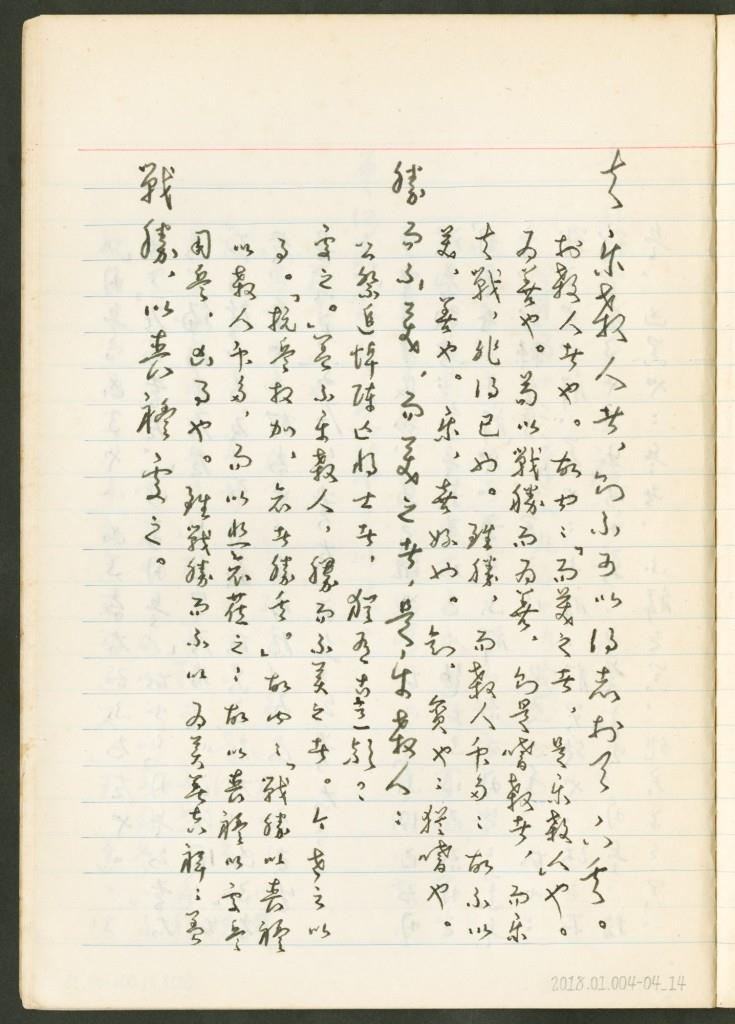 夫樂殺人者，則不可以得志於天下矣。
於殺人者也。故曰：「而美之者，是樂殺人」也。
為善也。苟以戰勝而為善，則是嗜殺者，而樂
夫戰，非得已也。雖勝，而殺人不多；故不以
美，善也。樂，喜好也。則，貪也；猶嗜也。
勝而不美，而美之者，是樂殺人；
公祭追悼陣亡將士者，猶有古意歟？
處之。」蓋不樂殺人，勝而不美之者。今者之以
子。「抗兵相加，哀者勝矣。」故曰：「戰勝以喪禮
以殺人不多，而以悲哀蒞之；故以喪禮以處兵
用兵，凶事也。雖戰勝而不以為美善吉祥；蓋
戰勝，以喪禮處之。
2018.01.004-04_14